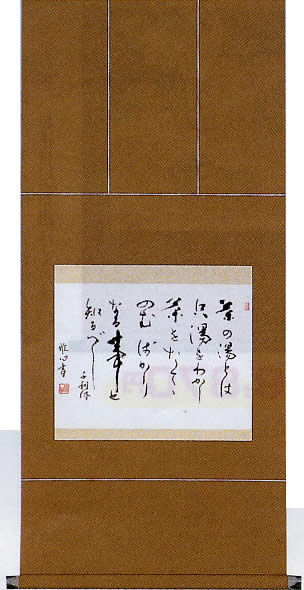 茶の湯とは
只湯をわかし
茶をたてゝ
のむばかり
なる事と
知るべし
千利休